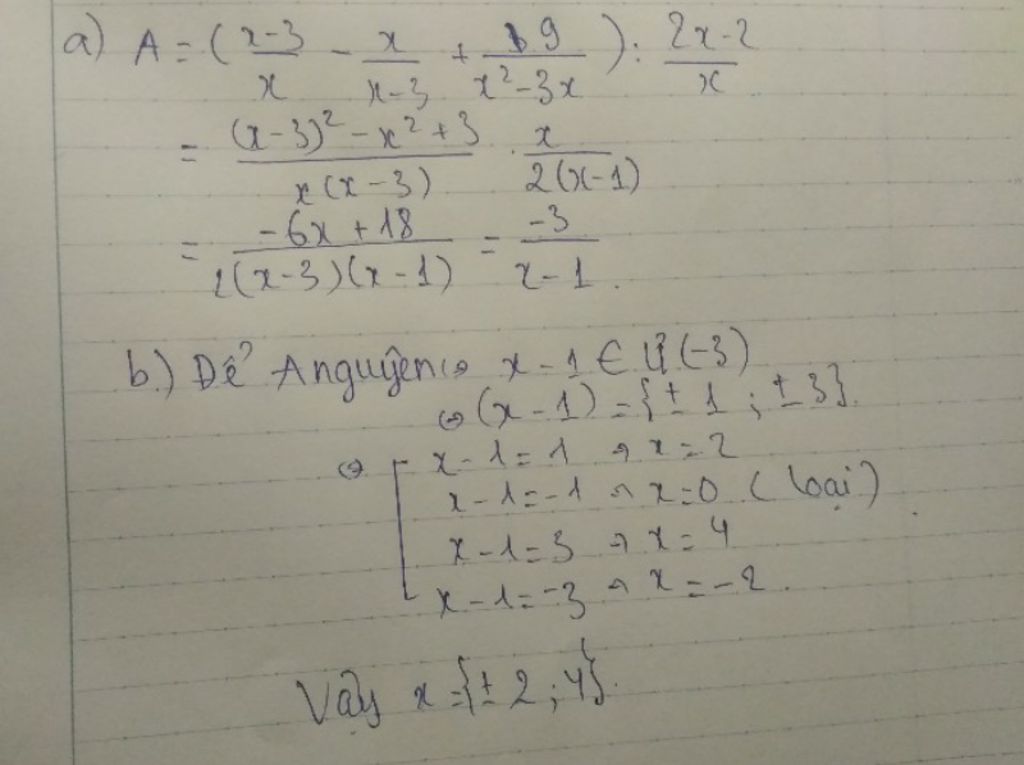 a) A = ( (x-3)/x - x/(x-3) + 9/(x² - 3x) ) : (2x-2)/x
= ((x-3)² - x² + 3)/(x(x-3)) . x/(2(x-1))
= (-6x + 18)/(2(x-3)(x-1)) = -3/(x-1) .
b.) Để A nguyên ⇔ x - 1 ∈ Ư(-3)
⇔ (x - 1) = {± 1 ; ± 3}.
⇔ [ x - 1 = 1 → x = 2
x - 1 = -1 → x = 0 ( loại )
x - 1 = 3 → x = 4
x - 1 = -3 → x = -2 .
Vậy x = {± 2 ; 4}.